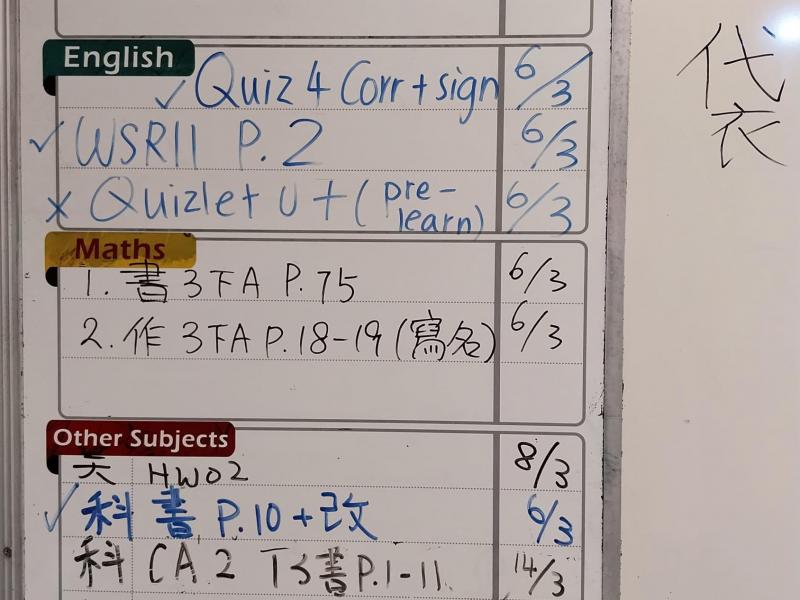 English
✓ Quiz 4 Corr + sign 6/3
✓ WSR11 P.2 6/3
x Quizlet U7 (pre-learn) 6/3
Maths
1. 書 3下A P.75 6/3
2. 作 3下A P.18-19 (寫名) 6/3
Other Subjects
HW02 8/3
✓ 科書 P.10 + 改 6/3
科 CA 2 書 P.1-11 14/3
代
衣